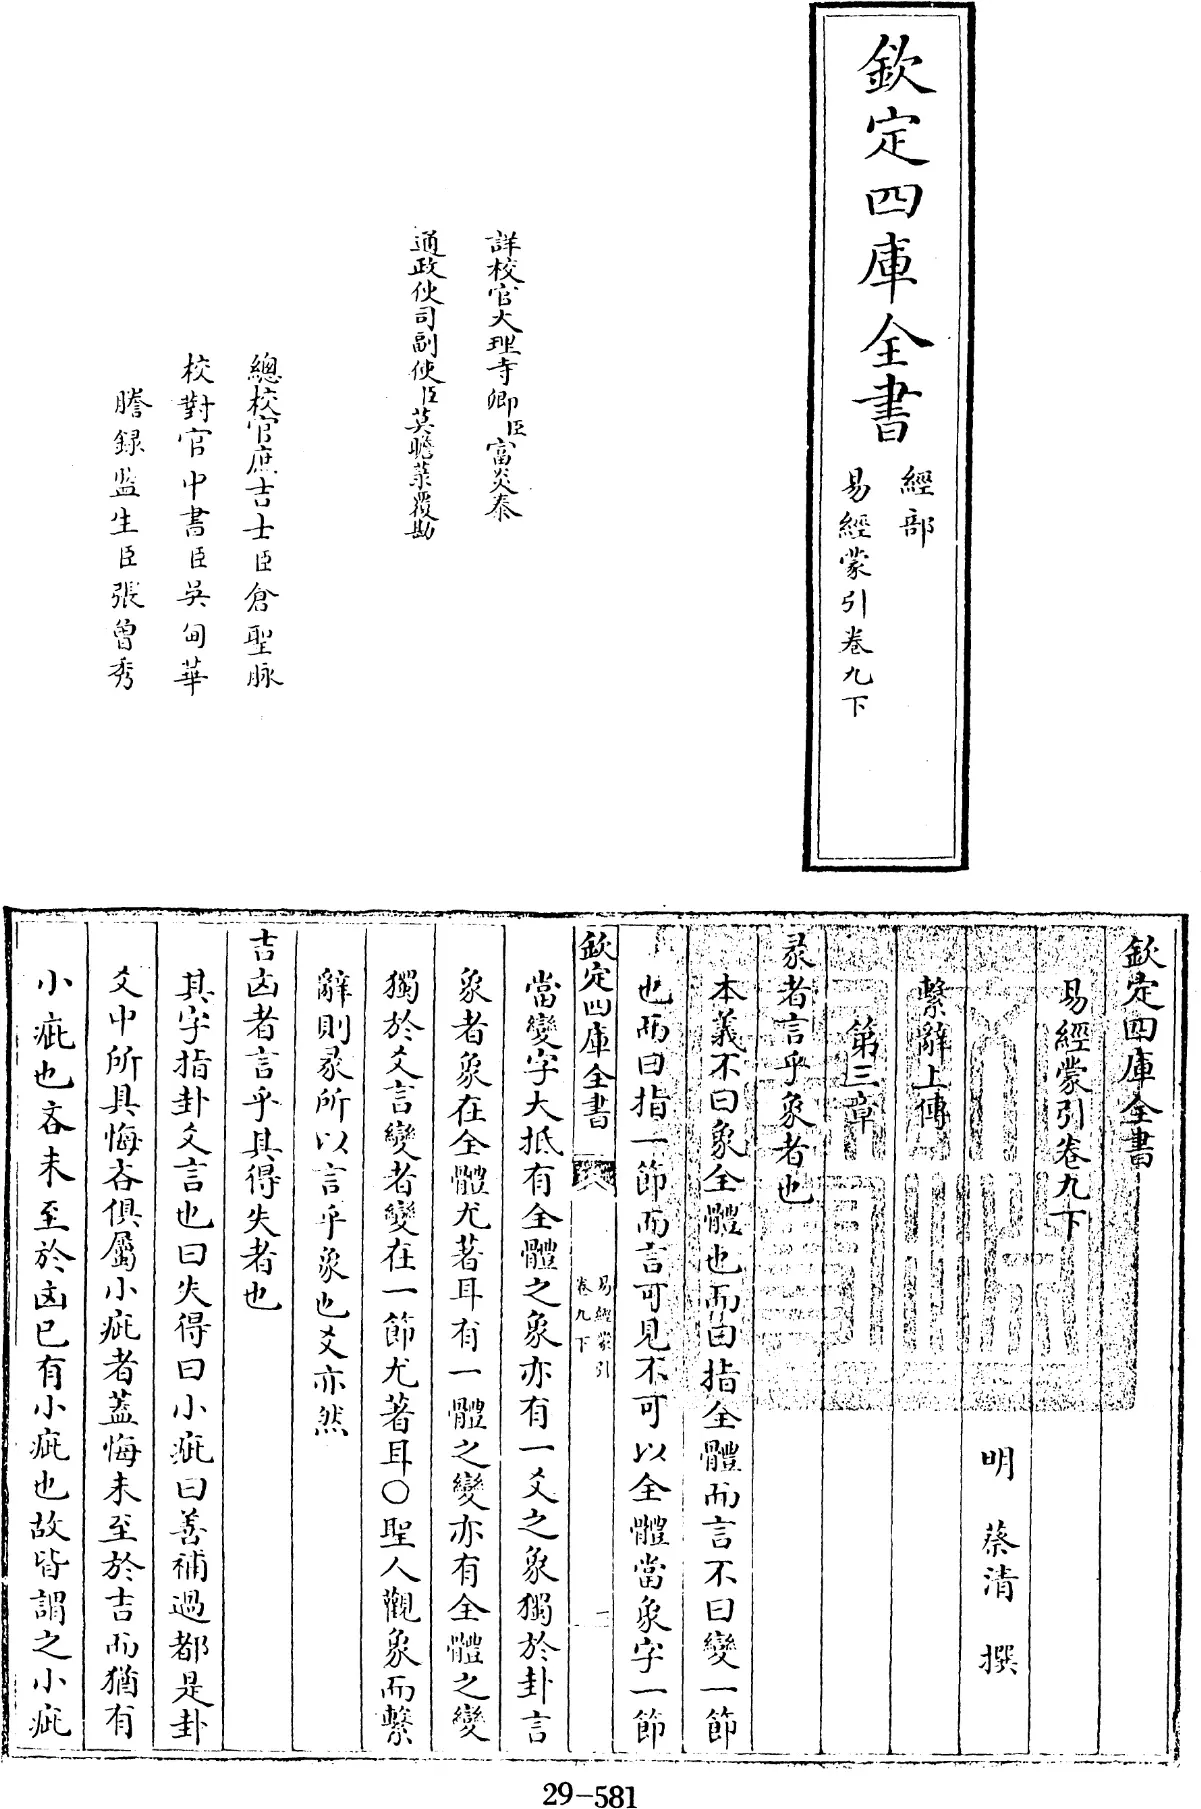 欽定四庫全書
經部
易經蒙引卷九下
詳校官大理寺卿臣富炎泰
通政使司副使臣莫瞻菉覆勘
總校官庶吉士臣倉聖脉
校對官中書臣吳甸華
謄録監生臣張曾秀
欽定四庫全書
易經蒙引卷九下
明 蔡清 撰
繫辭上傳
第三章
彖者言乎象者也
本義不曰象全體也而曰指全體而言不曰變一節
也而曰指一節而言可見不可以全體當象字一節
欽定四庫全書
易經蒙引
卷九下
一
當變字大抵有全體之象亦有一爻之象獨於卦言
象者象在全體尤著耳有一體之變亦有全體之變
獨於爻言變者變在一節尤著耳○聖人觀象而繫
辭則彖所以言乎象也爻亦然
吉凶者言乎其得失者也
其字指卦爻言也曰失得曰小疵曰善補過都是卦
爻中所具悔吝俱屬小疵者蓋悔未至於吉而猶有
小疵也吝未至於凶已有小疵也故皆謂之小疵
29-581